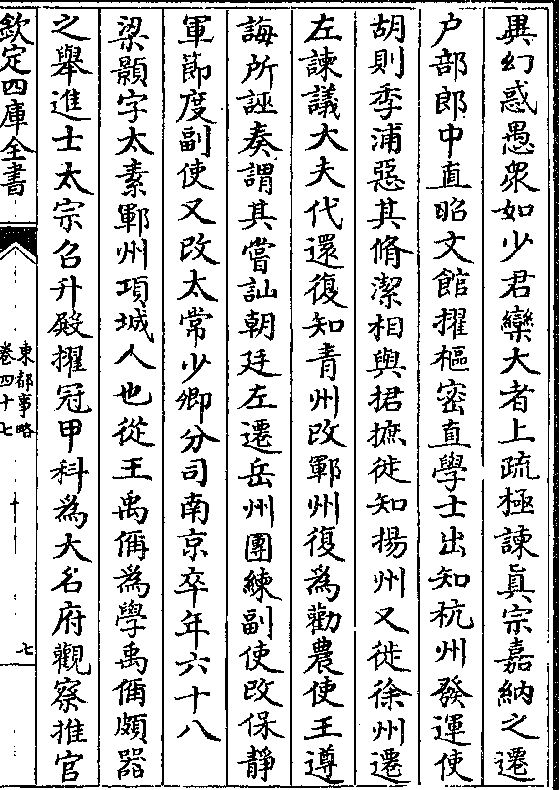 異幻惑愚衆如少君欒大者上疏極諫真宗嘉納之遷
户部郎中直昭文館擢樞密直學士出知杭州發運使
胡則季浦惡其脩潔相與捃摭徙知揚州又徙徐州遷
左諫議大夫代還復知青州改鄆州復為勸農使王遵
誨所誣奏謂其嘗訕朝廷左遷岳州團練副使改保静
軍節度副使又改太常少卿分司南京卒年六十八
梁顥字太素鄆州項城人也從王禹偁為學禹偁頗器
之舉進士太宗召升殿擢冠甲科為大名府觀察推官
欽定四庫全書
東都事略
卷四十七
七